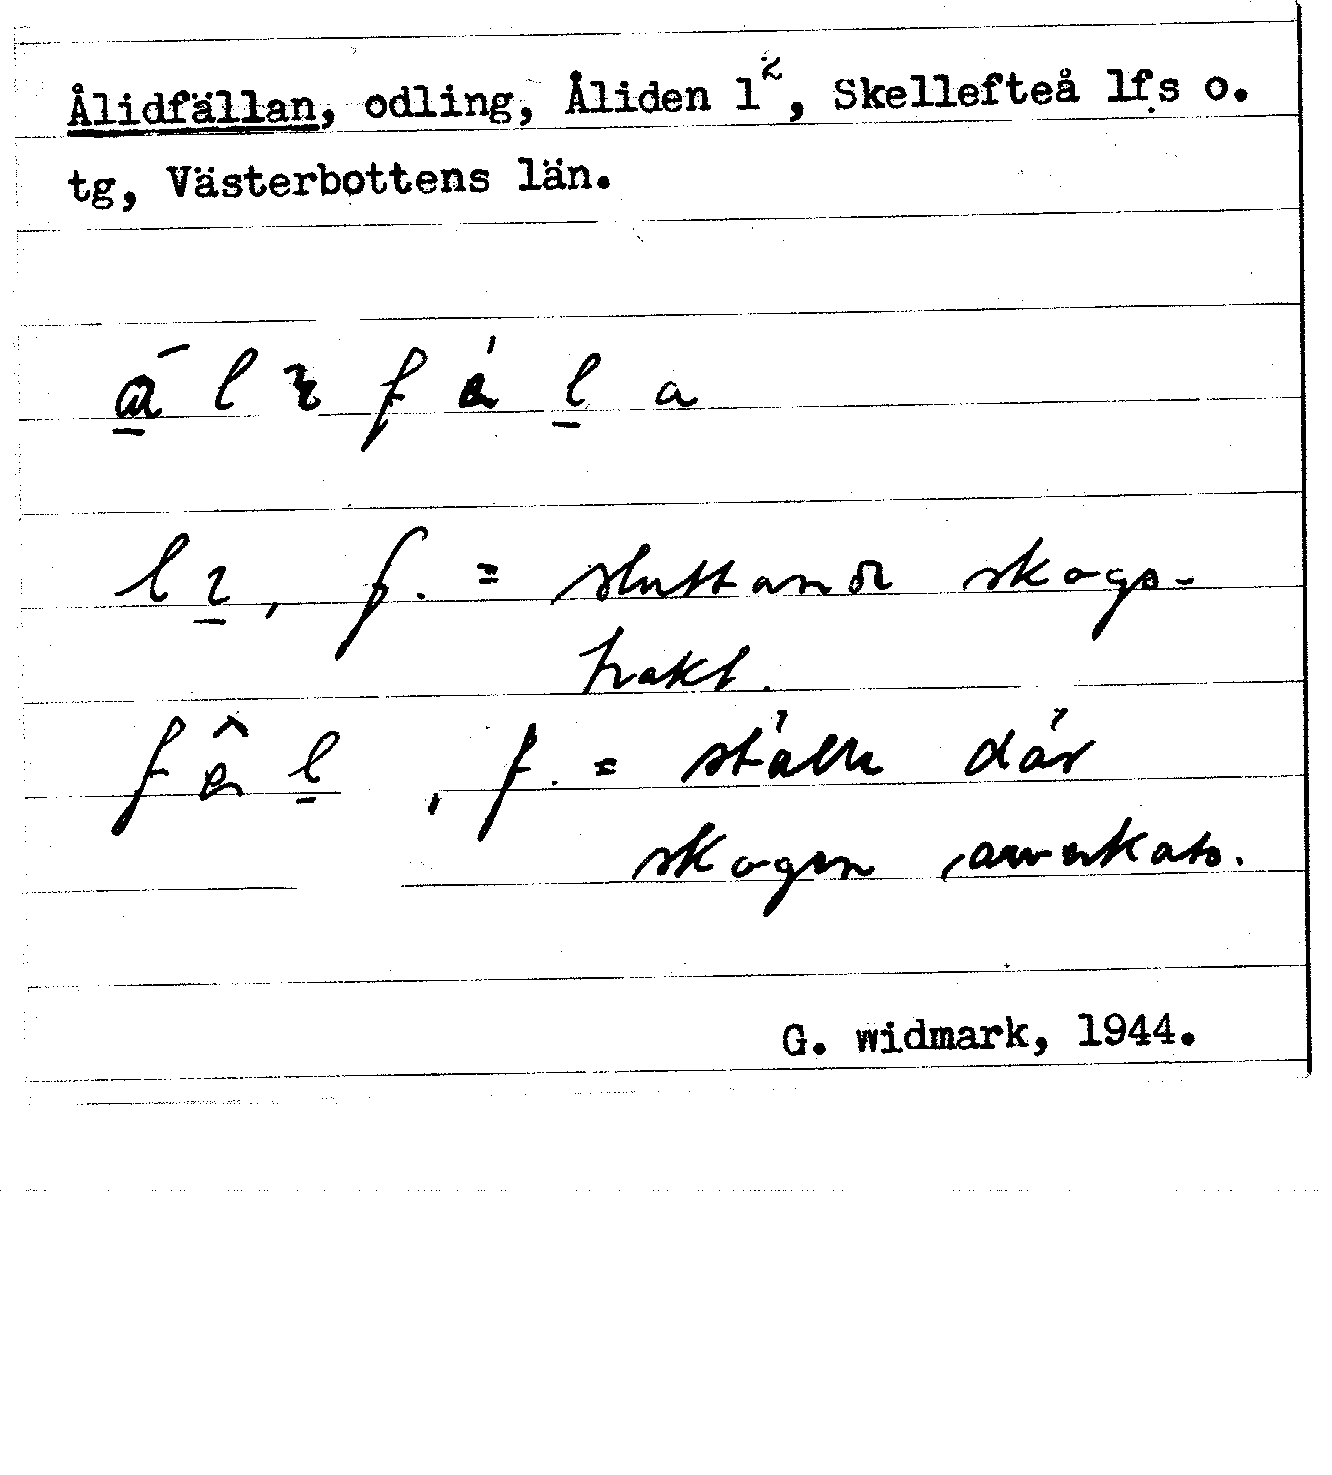 Ålidfällan, odling, Åliden 1², Skellefteå lfs o.
tg, Västerbottens län.
f. = sluttande skogs-
trakt.
f. = ställe där
skogen avverkats.
G. widmark, 1944.